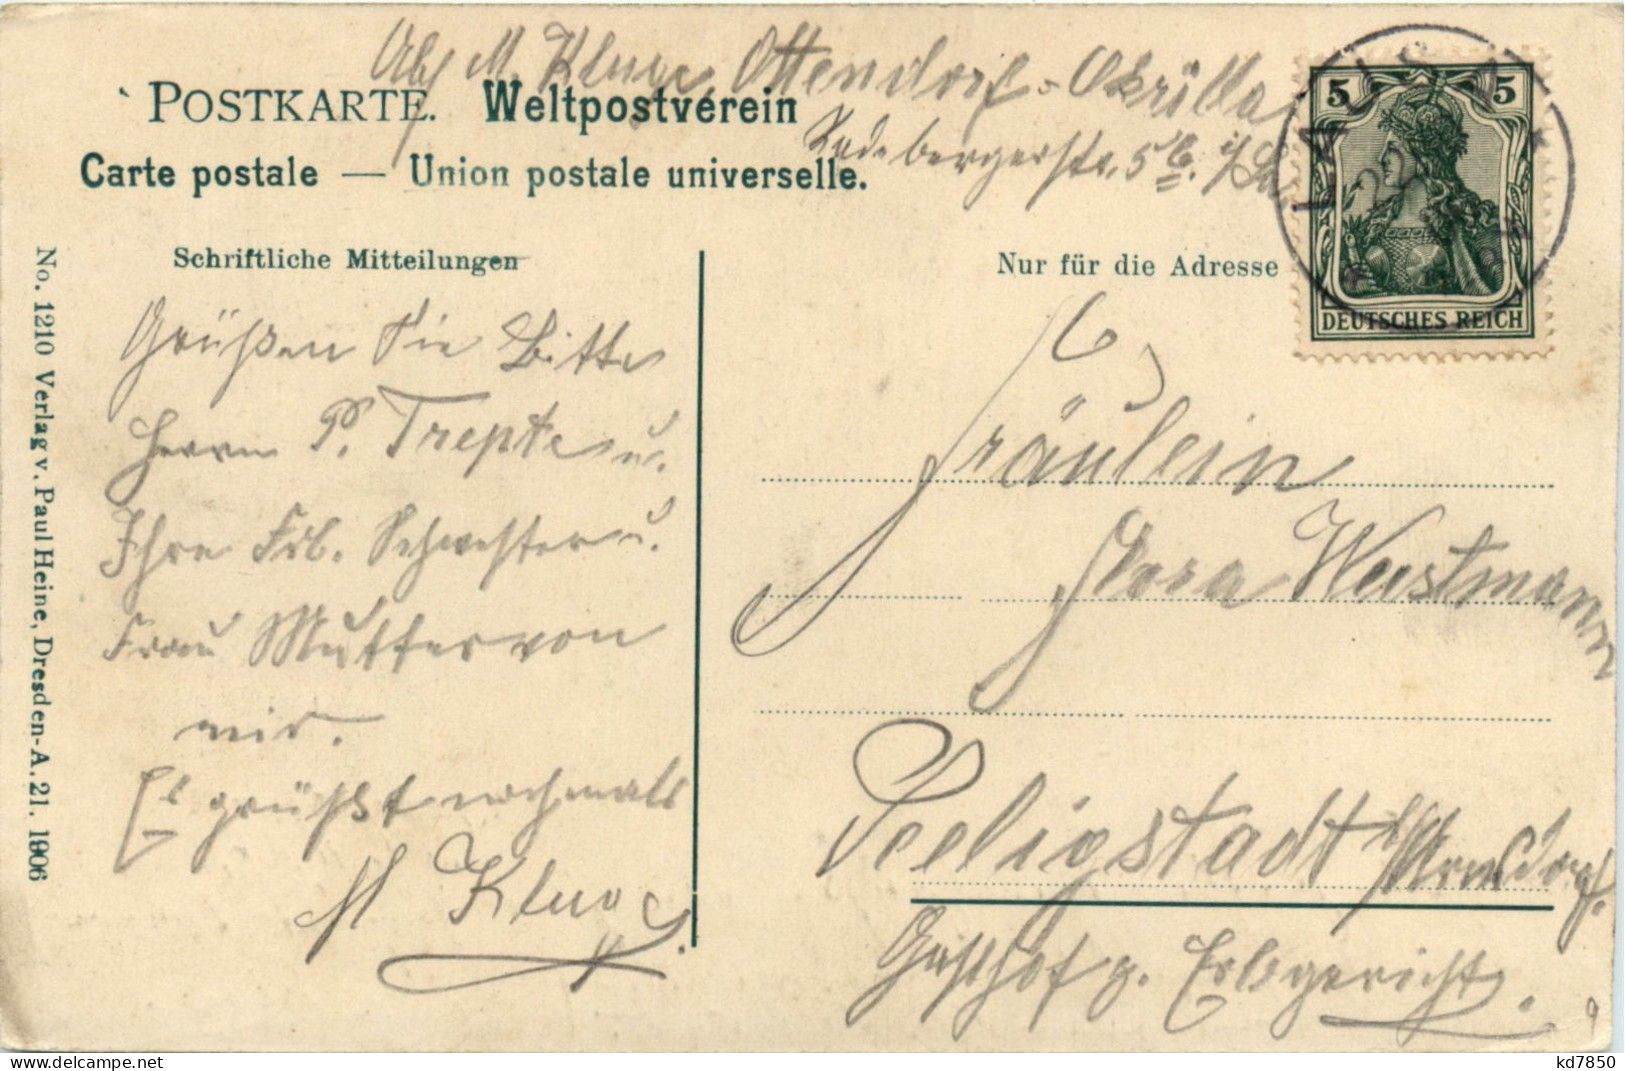 Abs. M. Kluge, Ottendorf-Okrilla
Radebergerstr. 5b. i/Sa
POSTKARTE. Weltpostverein
Carte postale — Union postale universelle.
5 5
DEUTSCHES REICH
LAUSA
Schriftliche Mitteilungen
Nur für die Adresse
Grüßen Sie Bitte
Herrn P. Trepte u.
Ihre Frl. Schwester u.
Frau Mutter von
mir.
Es grüßt nochmals
M Kluge
Fräulein
Flora Weistmann
Seeligstadt b/Arnsdorf.
Gasthof z. Erbgericht.
No. 1210 Verlag v. Paul Heine, Dresden-A. 21. 1906
kd7850